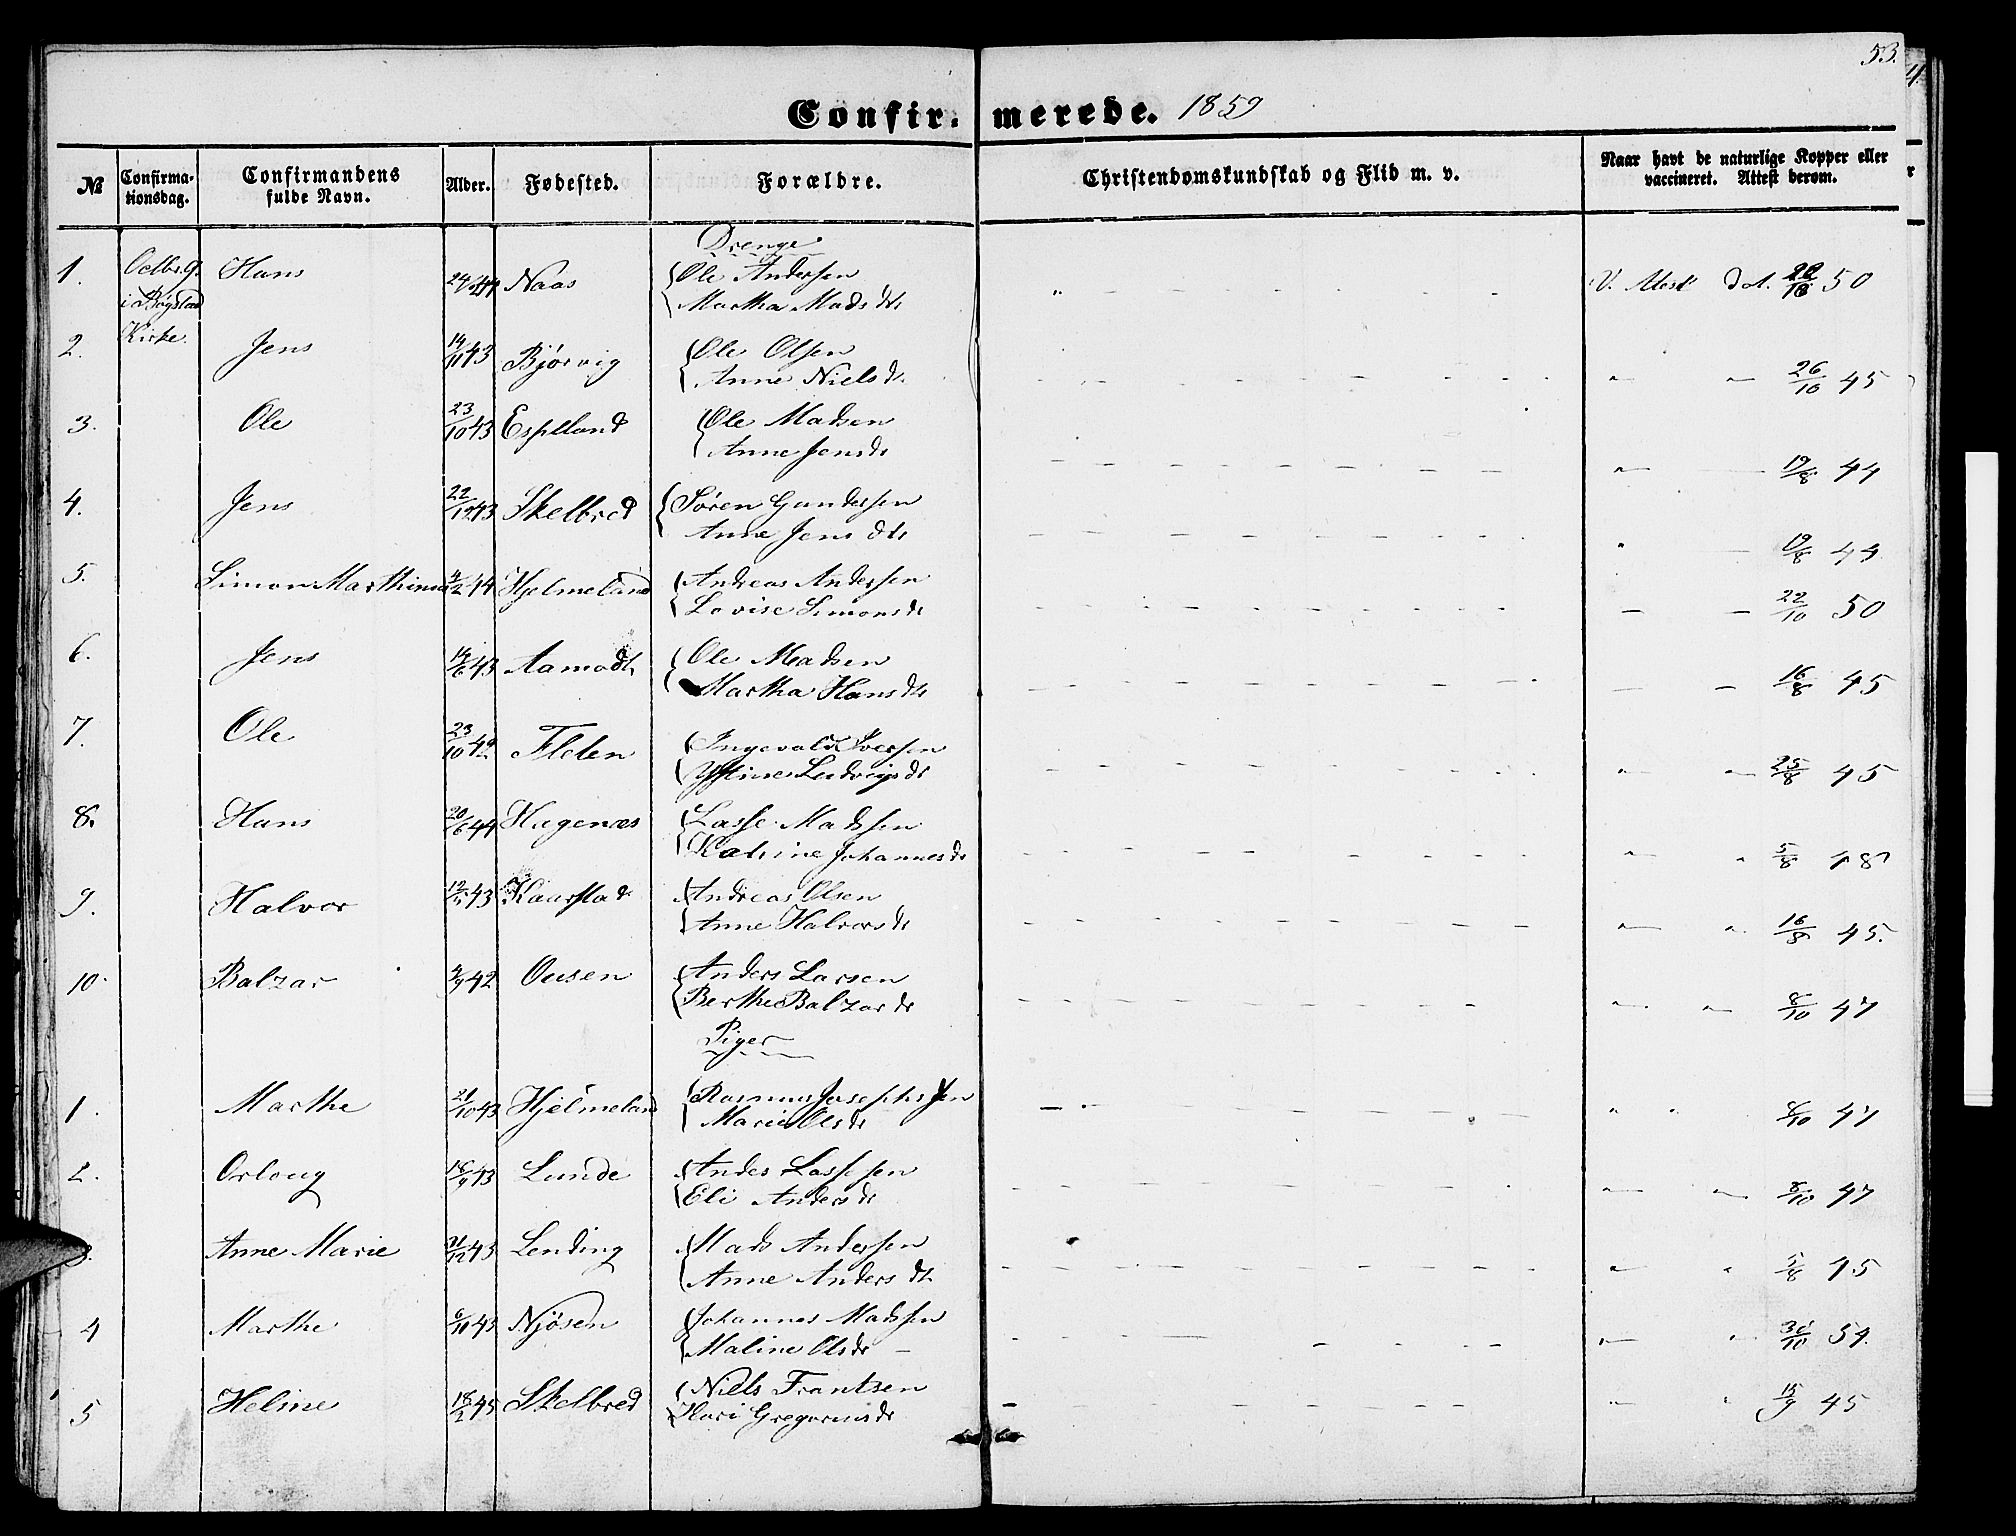 53.
Confirmerede. 1859
№ Confirmationsdag. Confirmandens fulde Navn. Alder. Fødested. Forældre. Christendomskundskab og Flid m. v. Naar havt de naturlige Kopper eller vaccineret. Attest derom.
Drenge
1. Hans Naas { Ole Andersen V. Attest dat. 50
i Bøgstad { Martha Madsdt
Kirke.
2. Jens 14/11 43 Bjørvig { Ole Olsen
{ Anne Nielsdt. 26/10 45
3. Ole 23/10 43 Espeland { Ole Madsen
{ Anne Jensdt 19/8 44
4. Jens 22/12 43 Skelbred { Søren Gundersen
{ Anne Jensdt 19/8 44
5. Simon Marthinus 4/2 44 Hjelmeland { Andreas Andersen
{ Lovise Simonsdt 22/10 50
6. Jens 14/6 43 Aamodt { Ole Madsen
{ Martha Hansdt 16/8 45
7. Ole 23/10 42 Fleten { Ingevald Iversen
{ Ludvigsdt 25/8 45
8. Hans 20/6 44 Hagenæs { Lasse Madsen
{ Katrine Johannesdt 5/8 48
9. Halvor 43 Kaarstad { Andreas Olsen
{ Anne Halvorsdt 16/8 45.
10. Balzar 4/9 42 Ousen { Anders Larsen
{ Berthe Balzardt 8/10 47
Piger
1. Marthe 21/10 43 Hjelmeland { Rasmus Josephsen
{ Marie Olsdt 8/10 47
2. Orloug 43 Lunde { Andes Lassesen
{ Eli Andersdt 8/10 47
3. Anne Marie 31/12 43 Lending { Mads Andersen
{ Anne Andersdt 5/8 45
4 Marthe 6/11 43 Njøsen { Johannes Madsen
{ Maline Olsdt 54.
5 Heline 18/2 45 Skelbred { Niels Frantsen
{ Kari Gregoriusdt 15/9 45